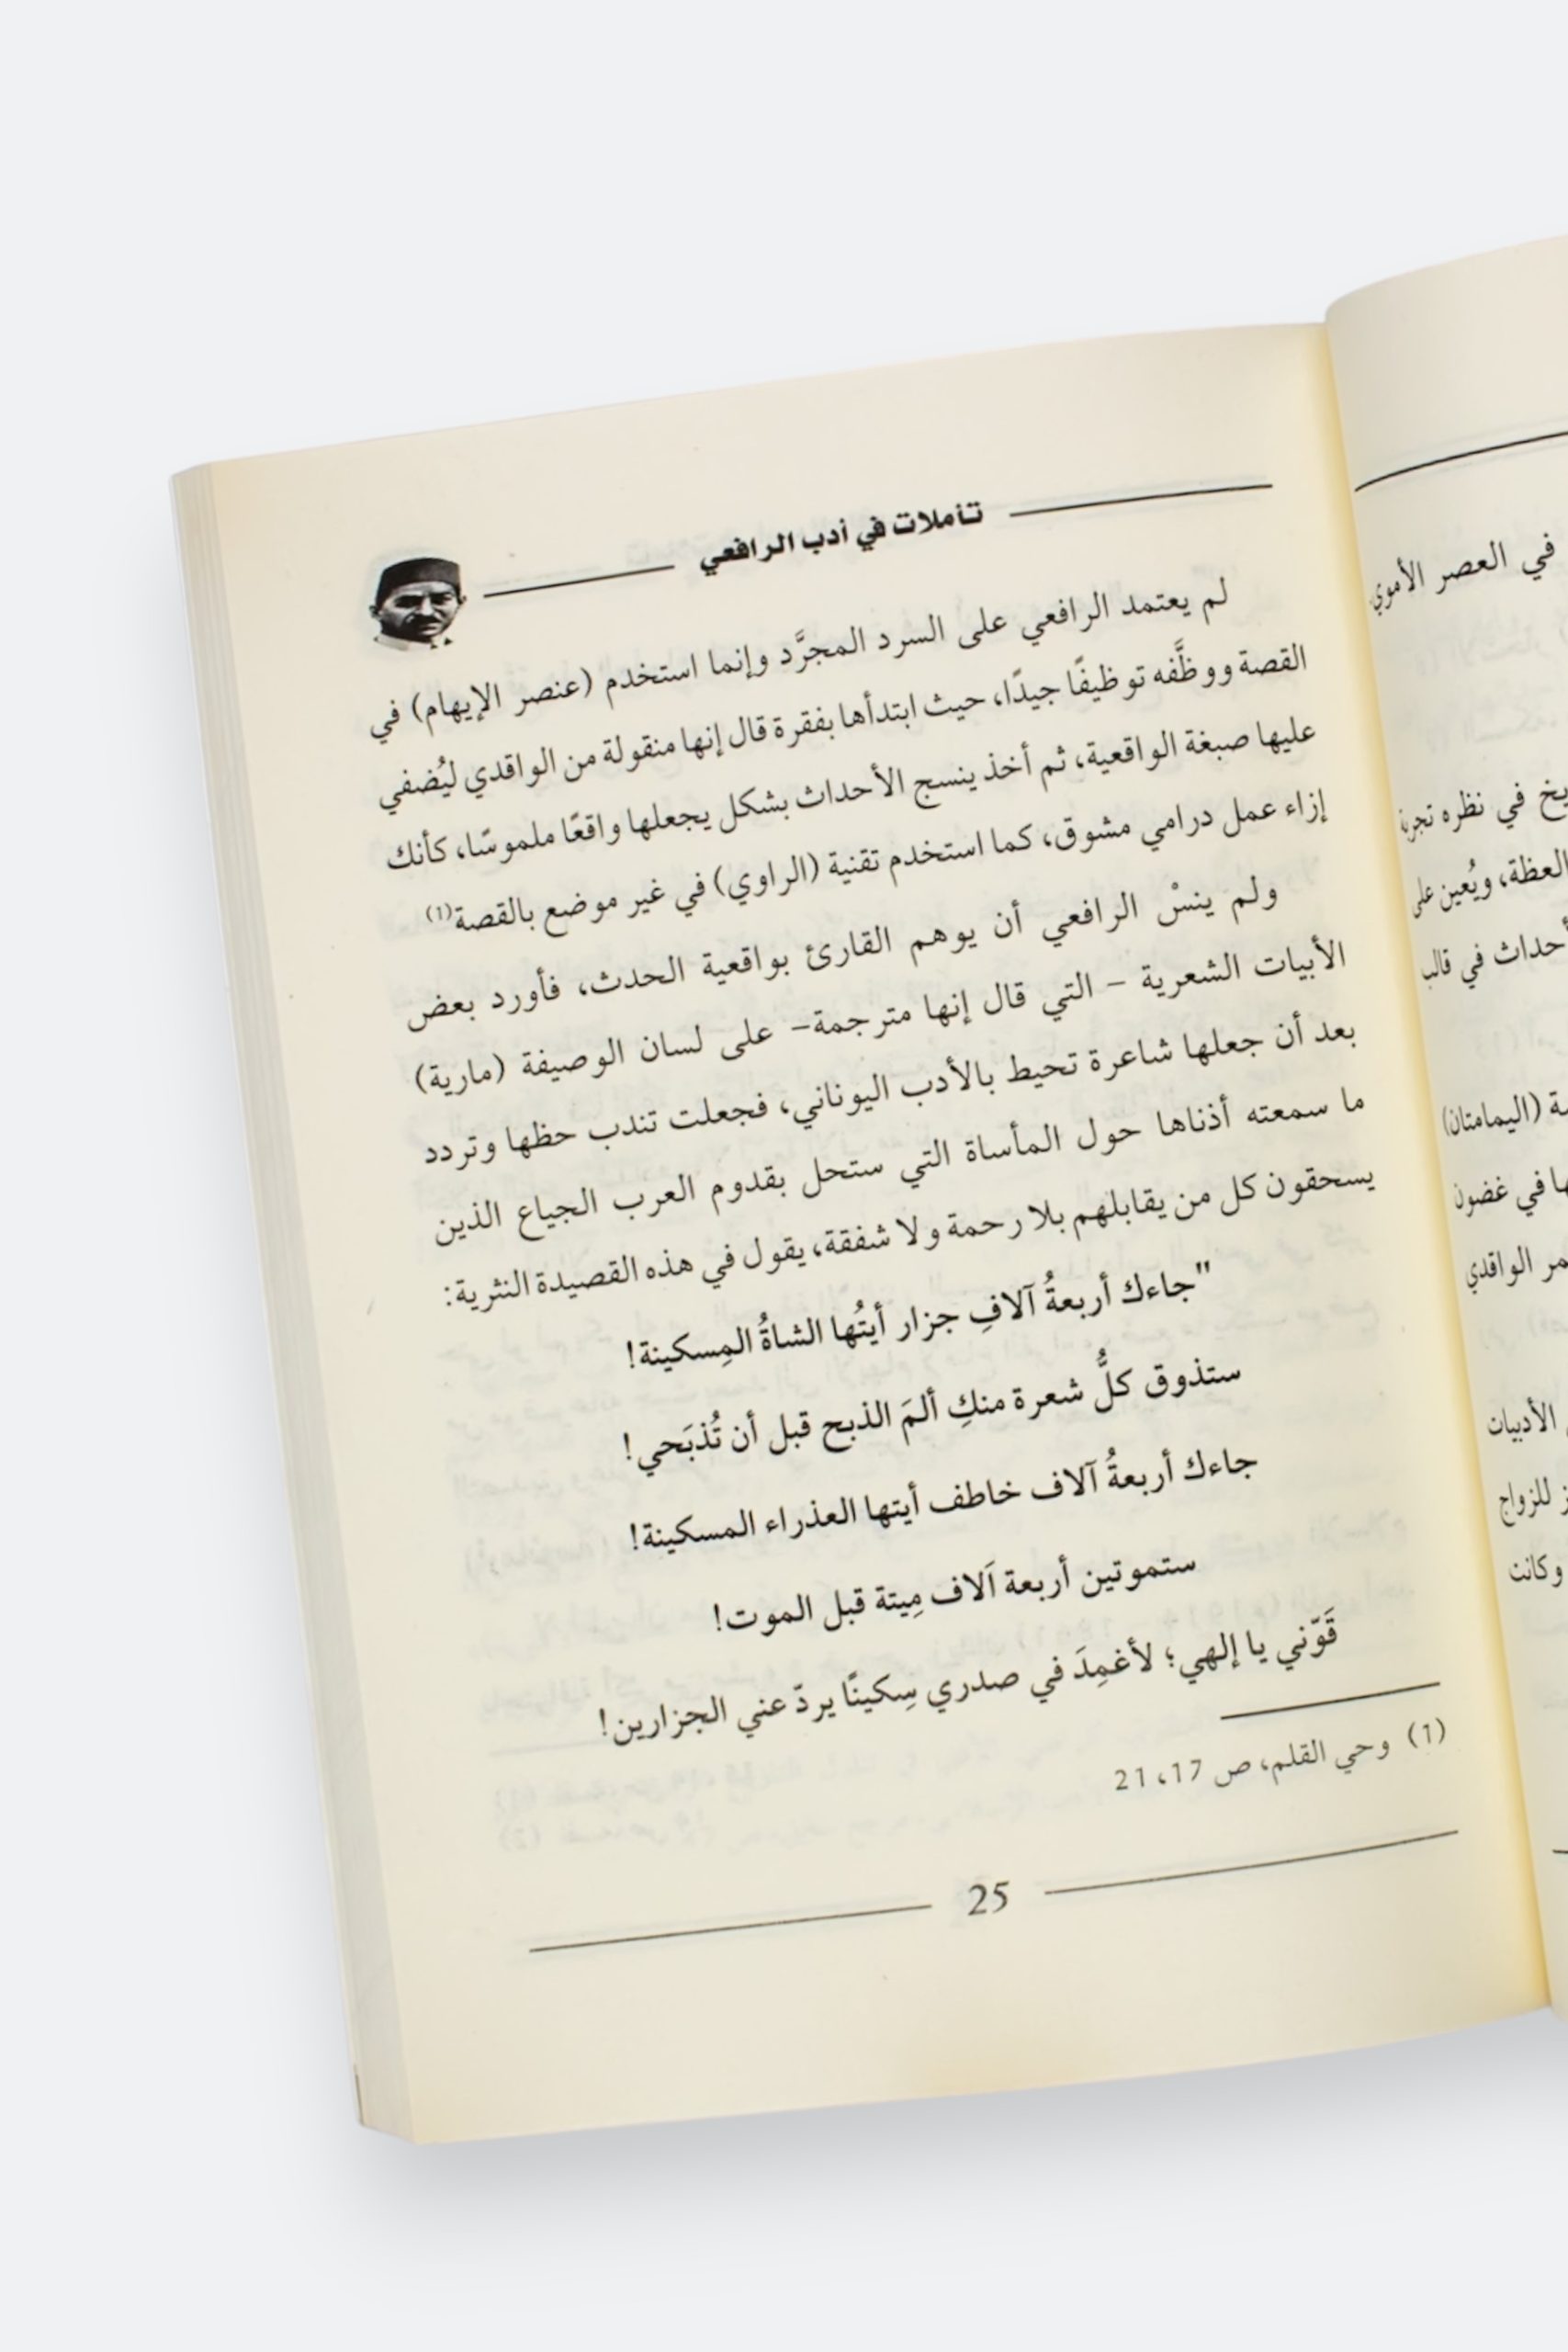 في العصر الأموي
في نظره تجربة
العظة، ويُعين على
أحداث في قالب
(اليمامتان)
في غضون
الواقدي
الأدبيات
للزواج
وكانت
تأملات في أدب الرافعي
لم يعتمد الرافعي على السرد المجرَّد وإنما استخدم (عنصر الإيهام) في
القصة ووظَّفه توظيفًا جيدًا، حيث ابتدأها بفقرة قال إنها منقولة من الواقدي ليُضفي
عليها صبغة الواقعية، ثم أخذ ينسج الأحداث بشكل يجعلها واقعًا ملموسًا، كأنك
إزاء عمل درامي مشوق، كما استخدم تقنية (الراوي) في غير موضع بالقصة(1)
ولم ينسْ الرافعي أن يوهم القارئ بواقعية الحدث، فأورد بعض
الأبيات الشعرية - التي قال إنها مترجمة- على لسان الوصيفة (مارية)
بعد أن جعلها شاعرة تحيط بالأدب اليوناني، فجعلت تندب حظها وتردد
ما سمعته أذناها حول المأساة التي ستحل بقدوم العرب الجياع الذين
يسحقون كل من يقابلهم بلا رحمة ولا شفقة، يقول في هذه القصيدة النثرية:
"جاءك أربعةُ آلافِ جزار أيتُها الشاةُ المِسكينة!
ستذوق كلُّ شعرة منكِ ألمَ الذبح قبل أن تُذبَحي!
جاءك أربعةُ آلاف خاطف أيتها العذراء المسكينة!
ستموتين أربعة آلاف مِيتة قبل الموت!
قَوّني يا إلهي؛ لأغمِدَ في صدري سِكينًا يردّ عني الجزارين!
(1) وحي القلم، ص 17، 21
25